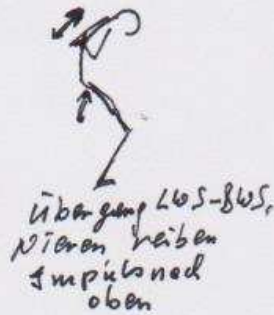 Übergang LWS-BWS,
Nieren reiben
Impuls nach
oben